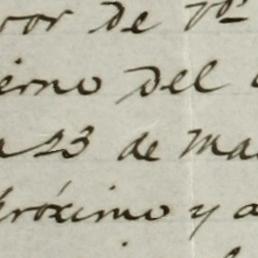 vor de Vº
ierno del
a 23 de Ma
próximo y a